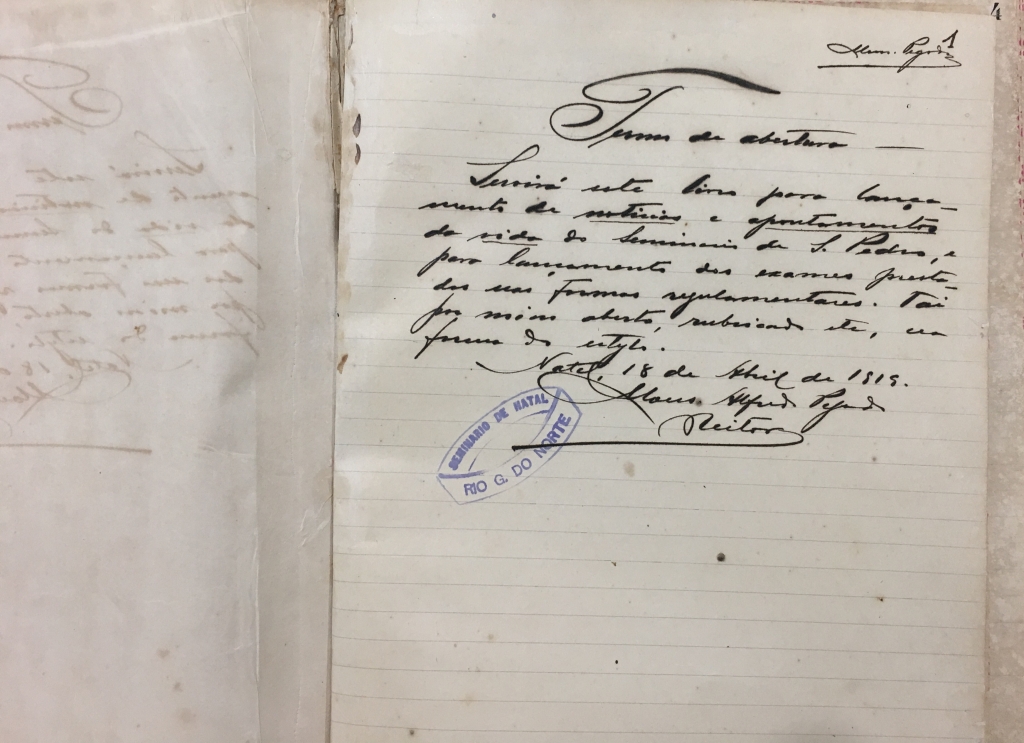 4
1
Mons. Pegado
Termo de abertura —
Servirá este livro para lança-
mento de noticias e apontamentos
da vida do Seminario de S. Pedro, e
para lançamento dos exames presta-
dos nas formas regulamentares. Vai
por mim aberto, rubricado etc, na
forma do estylo.
Natal, 18 de Abril de 1919.
Mons Alfredo Pegado
Reitor
SEMINARIO DE NATAL
RIO G. DO NORTE